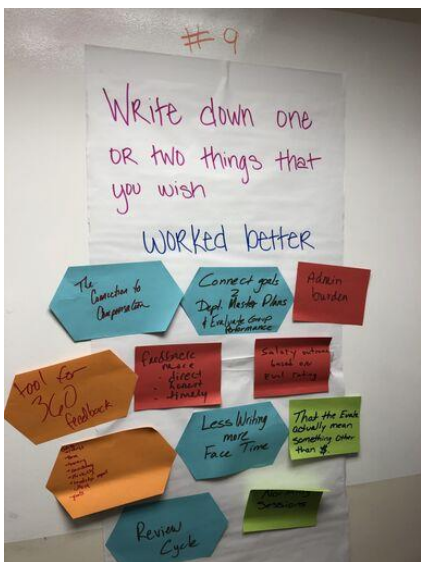 #9
Write down one
or two things that
you wish
worked better
The
Connection to
Compensation
Connect goals
2
Dept. Master Plans
& Evaluate Group
Performance
Admin
burden
tool for
360
feedback
Feedback
more
· direct
· honest
· timely
Salary
based on
Eval rating
Less Writing
more
Face Time
That the Evals
actually mean
something other
than $.
Review
Cycle
Sessions